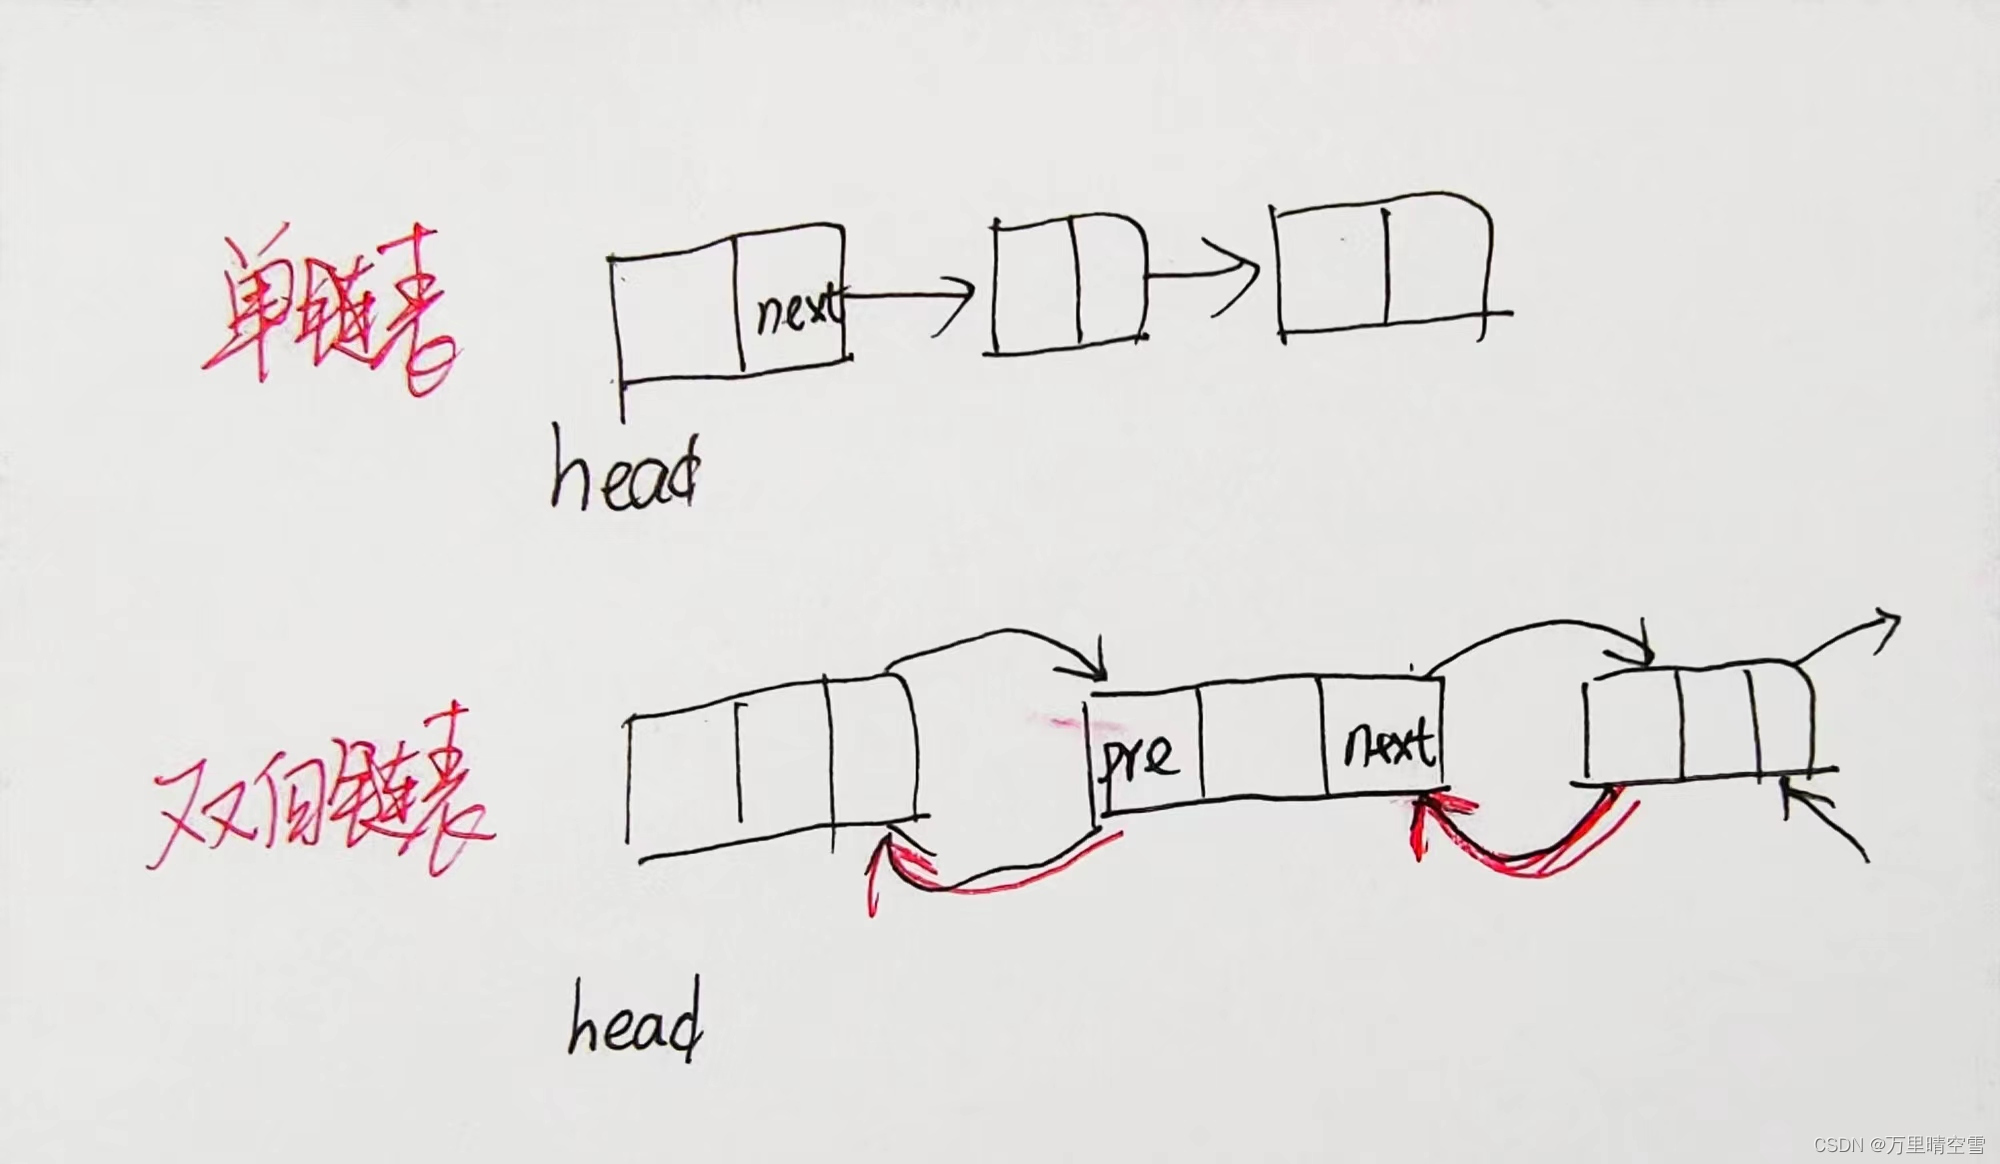 单链表
next
head
双向链表
pre
next
head
CSDN @万里晴空雪